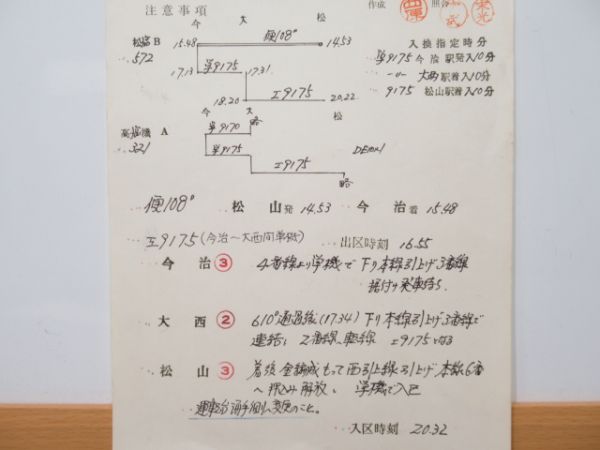 注意事項
作成
今 大 松
松山 B 15.48 便108° 14.53
572
入換指定時分
単9175 今治駅発入10分
〃 大西駅着入10分
9175 松山駅着入10分
17.13 単9175 17.31
18.20 工9175 20.22
今 大 松
機 A 単9170
321 単9175
工9175
DE10×1
便108° 松山発 14.53 今治着 15.48
工9175(今治〜大西間単機)
出区時刻 16.55
今治③ 4番線より単機で下り本線引上げ3番線
据付け発車待ち
大西② 610°通過後(17.34)下り本線引上げ3番線で
連結し2番線転線 工9175となる
松山③ 着後全編成もって西引上線引上げ本線6番
へ押込み解放、単機で入区
運転台
変更のこと。
入区時刻 20.32